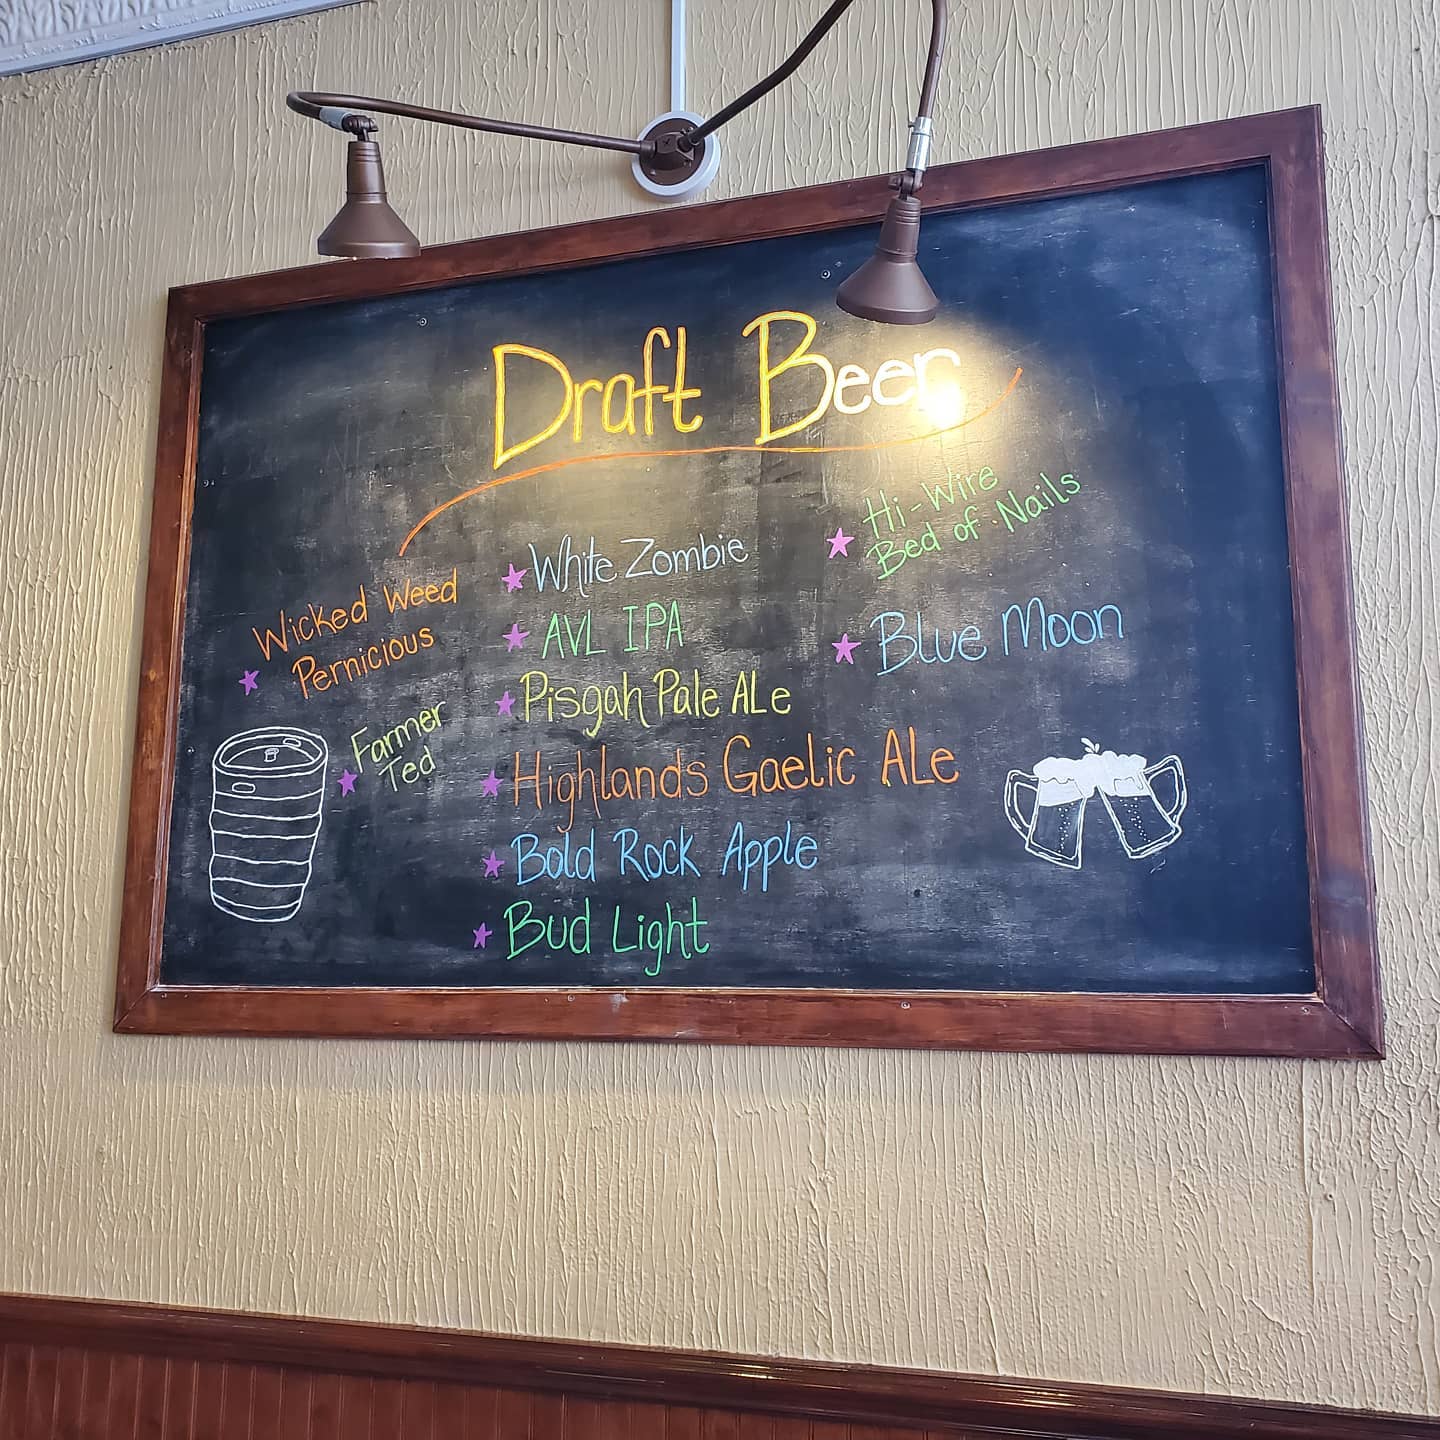 Draft Beer
Wicked Weed
Pernicious
Farmer
Ted
White Zombie
AVL IPA
Pisgah Pale ALe
Highlands Gaelic ALe
Bold Rock Apple
Bud Light
Hi-Wire
Bed of Nails
Blue Moon